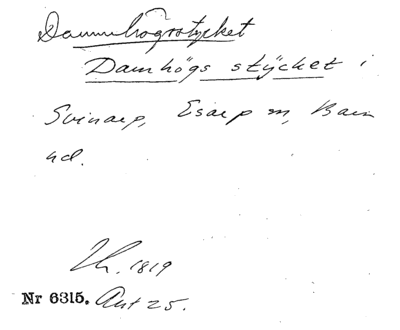 Dammhögsstycket
Damhögs stÿcket i
Svinarp, Esarp sn, Bara
hd.
1819
Nr 6315. Akt 25.